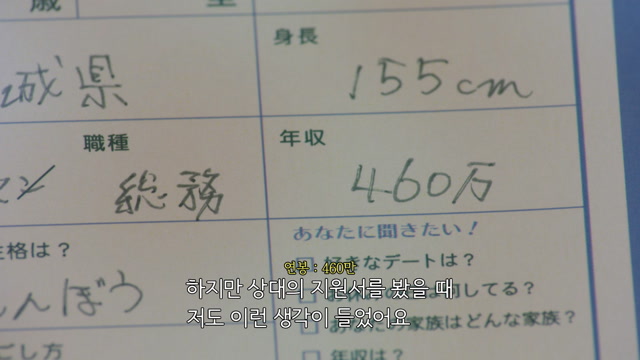 歳
身長
城県
155cm
職種
年収
総務
460万
性格は？
んぼう
あなたに聞きたい！
好きなデートは？
してる？
あなたの家族はどんな家族？
年収は？
ごし方
연봉 : 460만
하지만 상대의 지원서를 봤을 때
저도 이런 생각이 들었어요